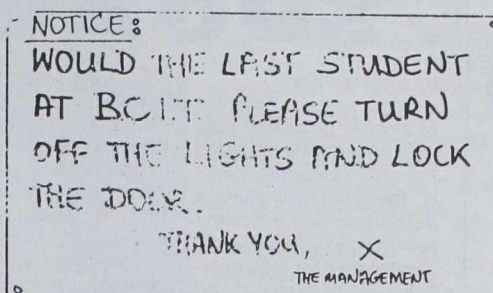 NOTICE:
WOULD THE LAST STUDENT
AT B.C.I.T. PLEASE TURN
OFF THE LIGHTS AND LOCK
THE DOOR.
THANK YOU, X
THE MANAGEMENT